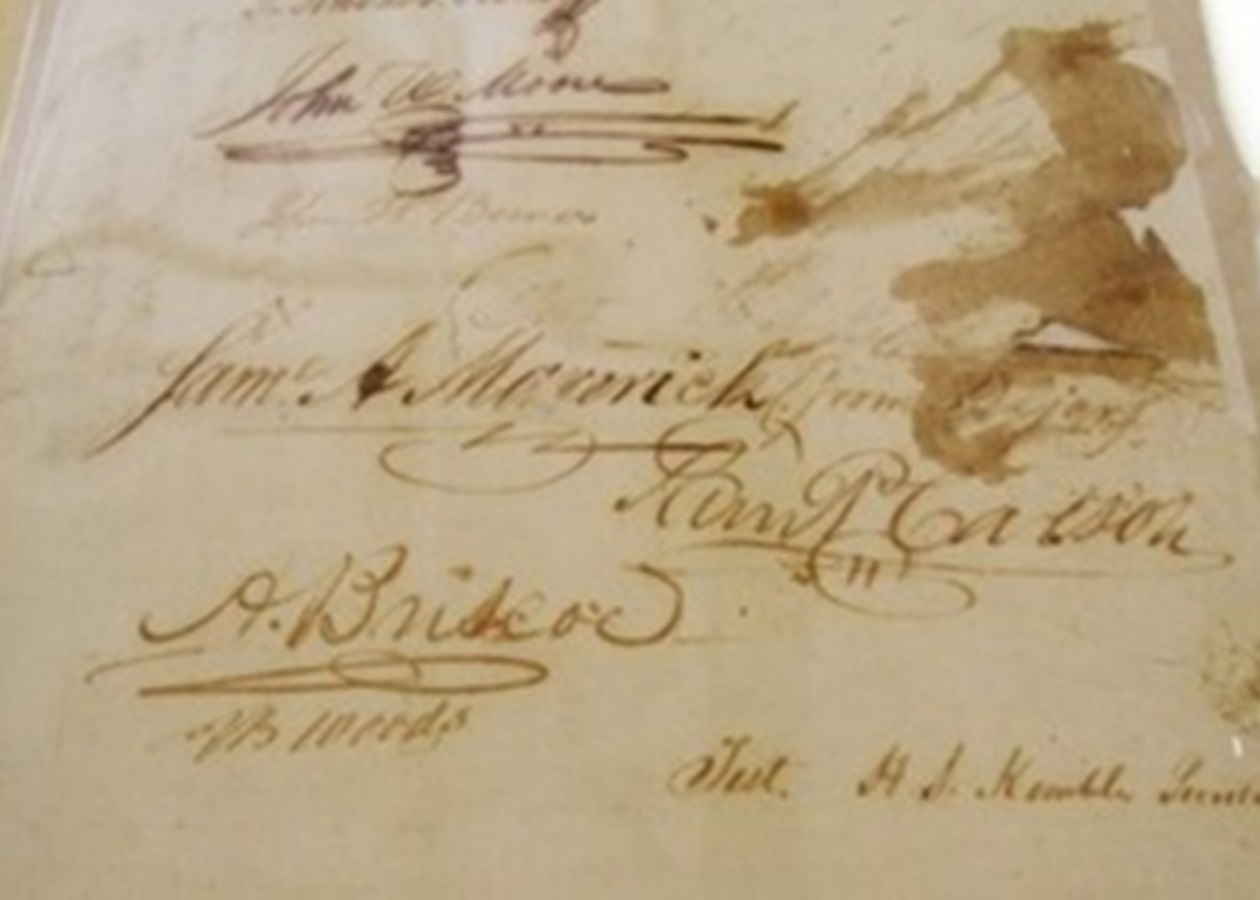 John W. Moore
John W. Bower
Saml A Maverick from Bejar
Sam P Carson
A. Briscoe
J B Woods
Test. H S. Kimble